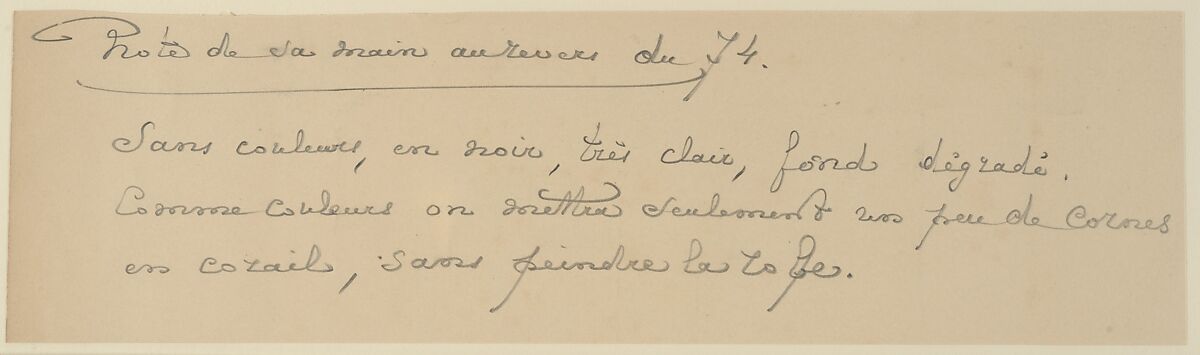 Noté de sa main au revers du 74.
Sans couleurs, en noir, très clair, fond dégradé.
Comme couleurs on mettra seulement un peu de cornes
en corail, sans peindre la robe.